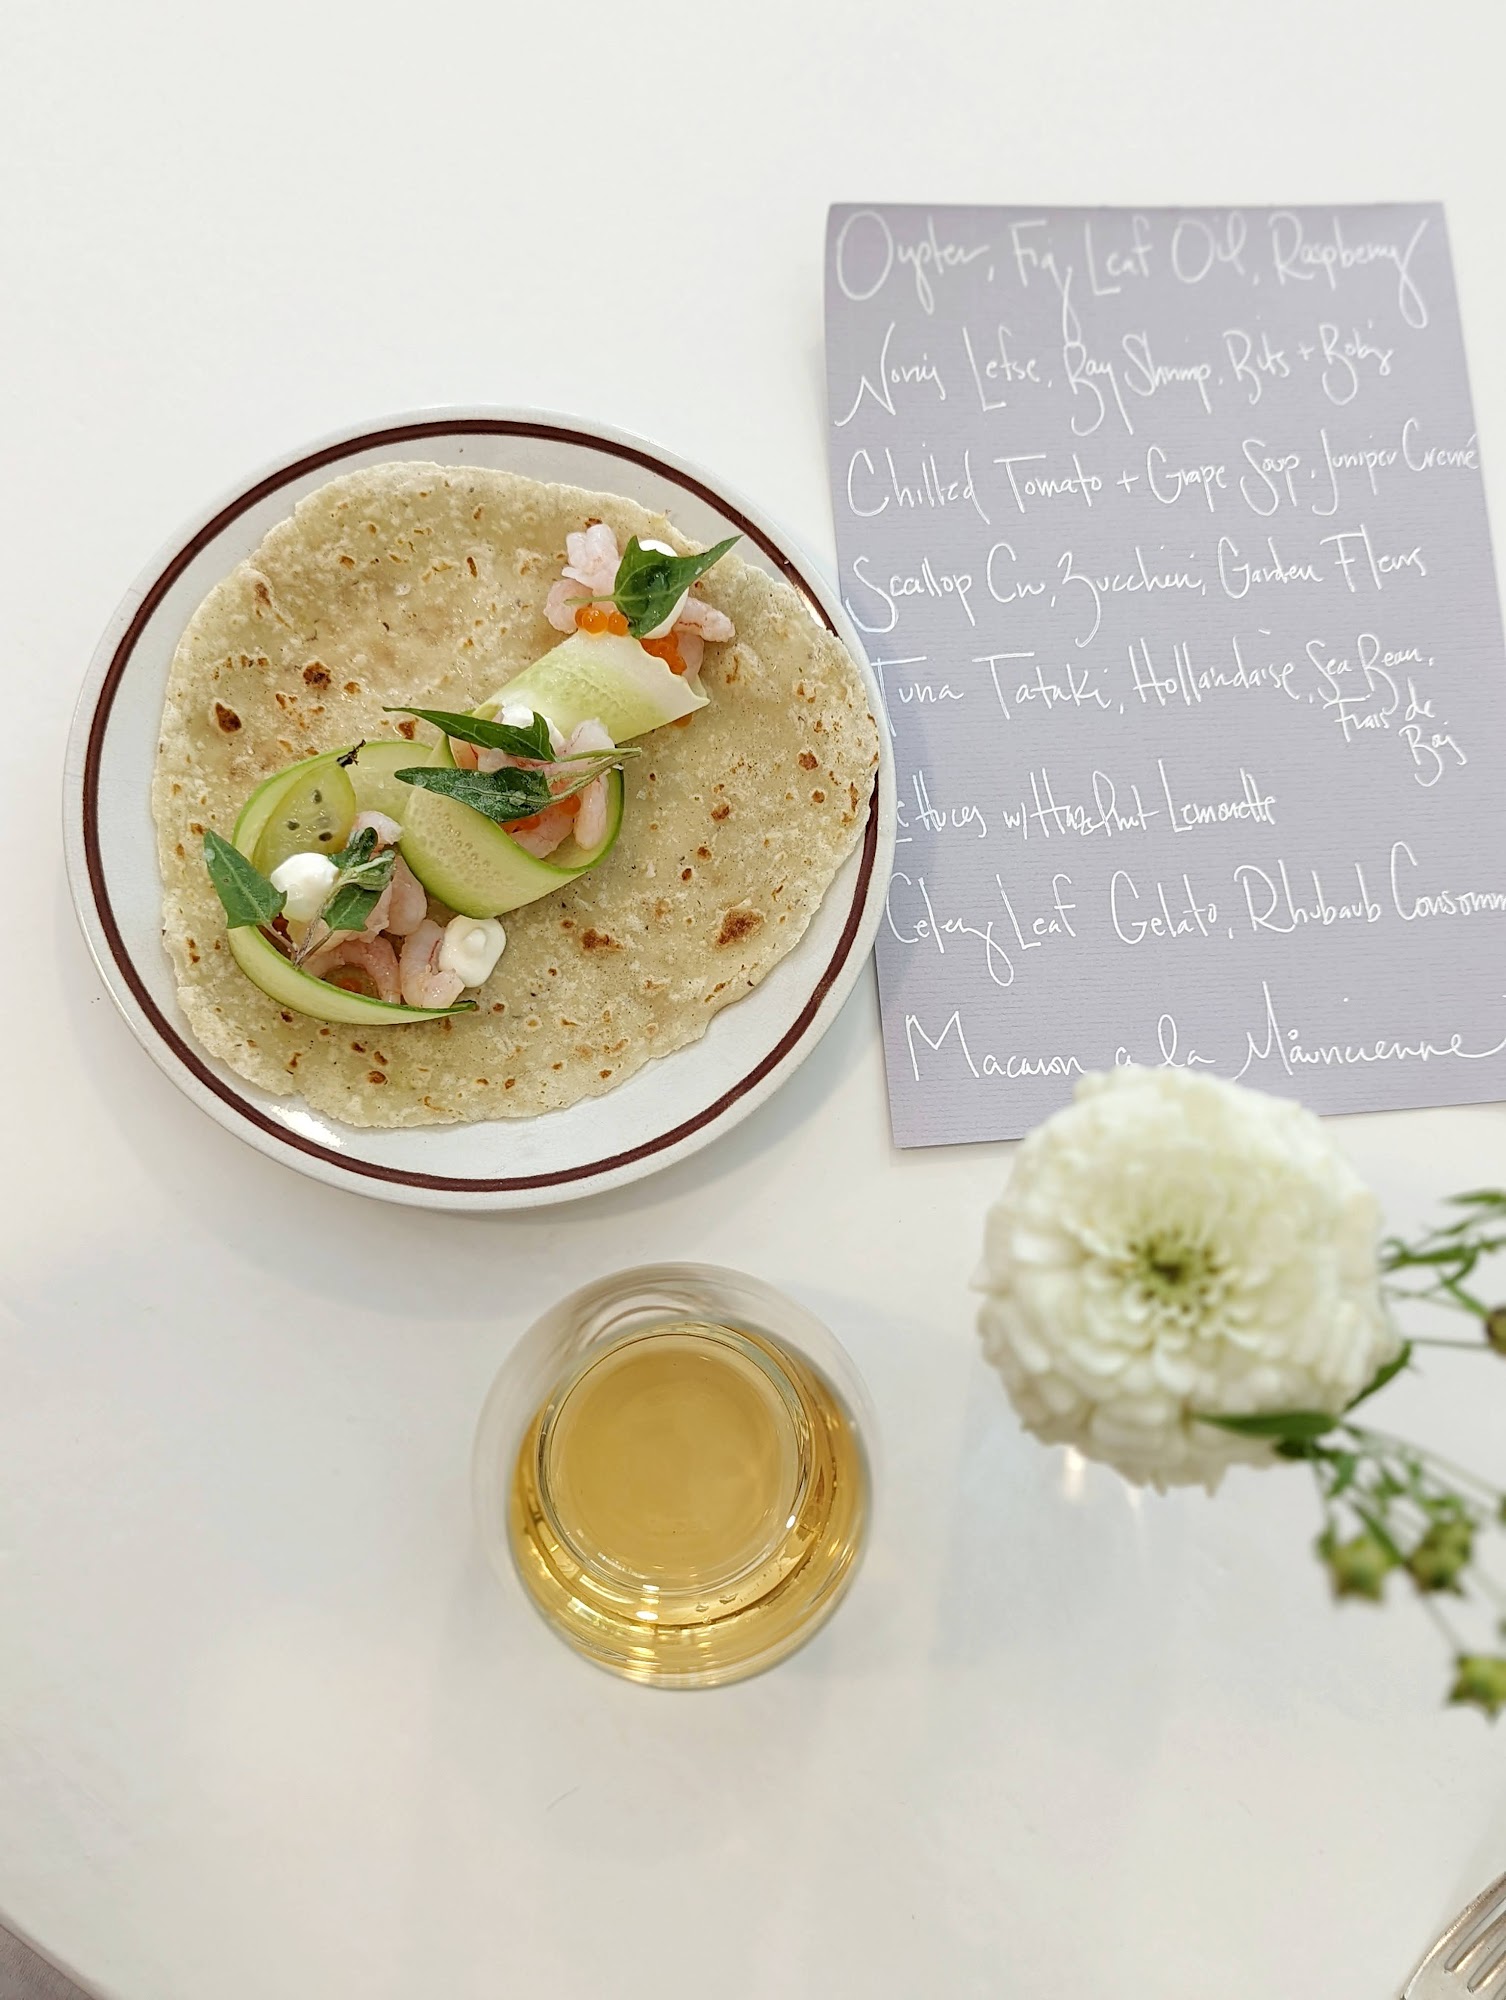 Oyster, Fig Leaf Oil, Raspberry
Lefse, Bay Shrimp, Bits + Bobs
Chilled Tomato + Grape Soup, Juniper Cremé
Scallop Cru, Zucchini, Garden Fleurs
Tuna Tataki, Hollandaise, Sea Bean,
Frais de
Bois
Lettuces w/ Hazelnut Lemonette
Celery Leaf Gelato, Rhubarb Consomm
Macaron a la